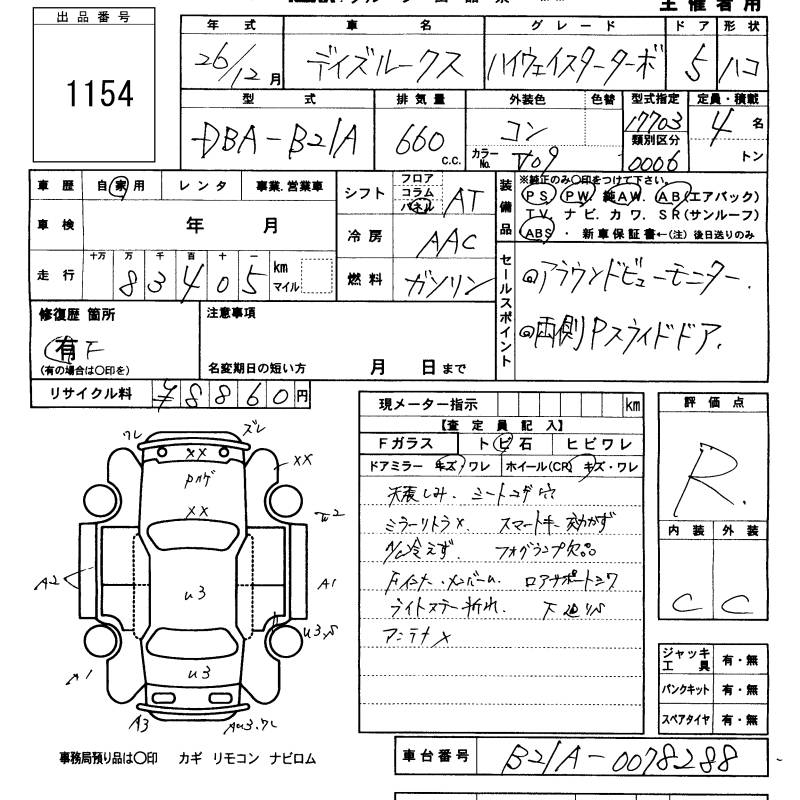 主催者用
出品番号
1154
年式 車名 グレード ドア 形状
26/12月 デイズルークス ハイウェイスターターボ 5 ハコ
型式 排気量 外装色 色替 型式指定 定員・積載
DBA-B21A 660 c.c. コン カラーNo. V09 17703 類別区分 0006 4名 トン
車歴 自家用 レンタ 事業.営業車
車検 年 月
走行 十万 万 千 百 十 一 83405 km マイル
シフト フロア コラム パネル AT
冷房 AAC
燃料 ガソリン
装備品 ※純正のみ〇印をつけて下さい。
PS. PW. 純AW. AB(エアバック)
TV. ナビ. カワ. SR(サンルーフ)
ABS ・ 新車保証書←(注) 後日送りのみ
セールスポイント
◎アラウンドビューモニター.
◎両側Pスライドドア.
修復歴 箇所
有 F
(有の場合は〇印を)
注意事項
名変期日の短い方 月 日まで
リサイクル料 ¥8860円
現メーター指示 km
【査定員記入】
Fガラス トビ石 ヒビワレ
ドアミラー キズ/ワレ ホイール(CR) キズ・ワレ
天張しみ. シートコゲ穴
ミラーリトラ× スマートキー効かず
A/C冷えず. フォグランプ欠品
ライトステー折れ.
アンテナ×
評価点
R.
内装 外装
C C
ワレ ズレ
×× ××
××
A2 u3 A1
u3
A3
ジャッキ工具 有・無
パンクキット 有・無
スペアタイヤ 有・無
事務局預り品は〇印 カギ リモコン ナビロム
車台番号 B21A-0078288